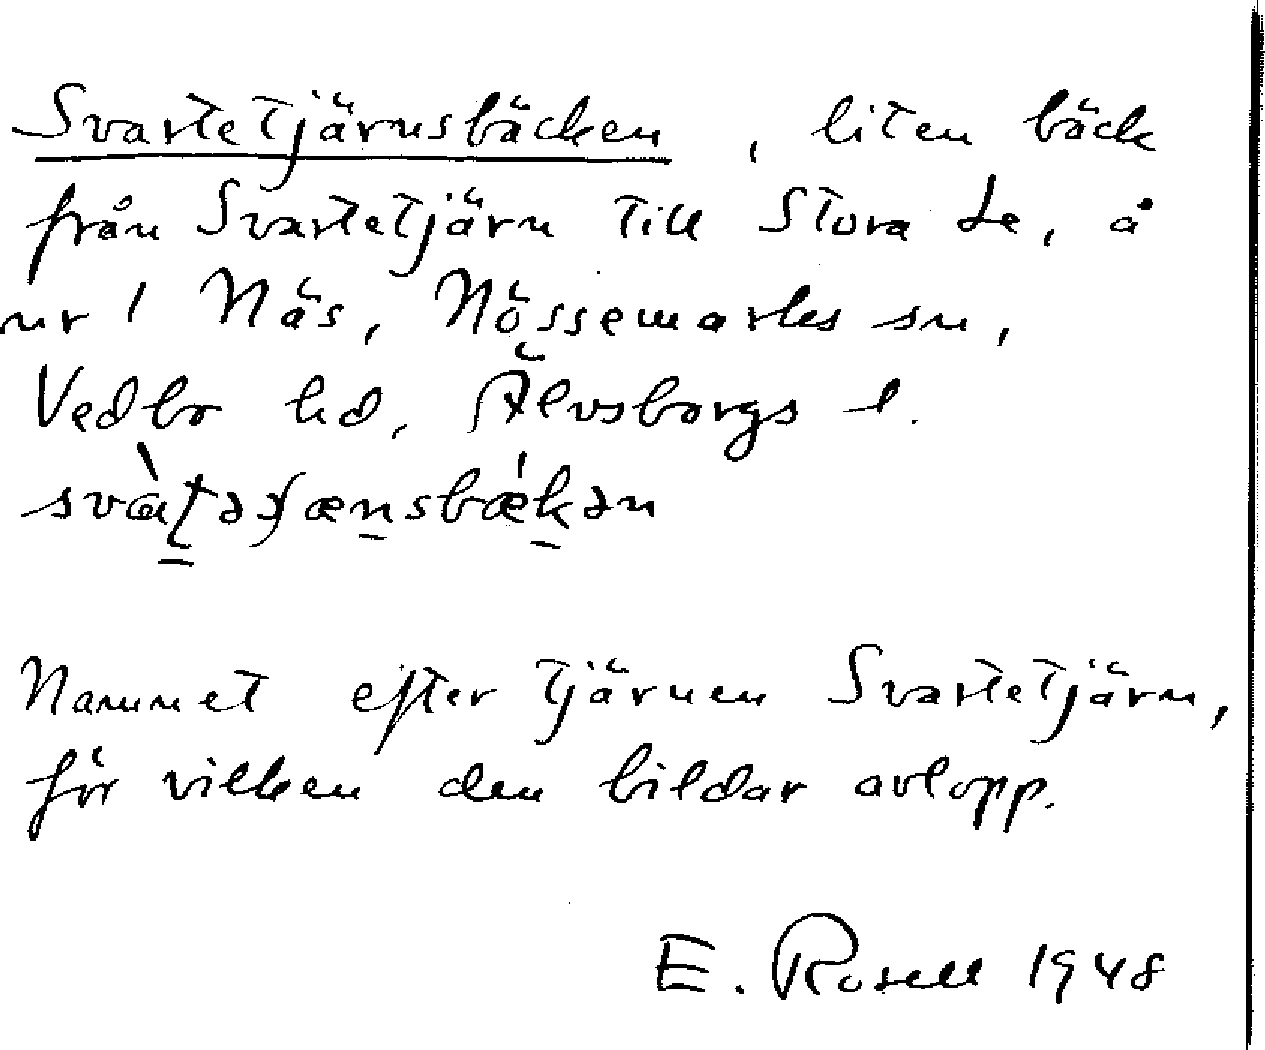 Svartetjärnsbäcken, liten bäck
från Svartetjärn till Stora Le, å
nr 1 Näs, Nössemarks sn,
Vedbo hd, Älvsborgs l.
Namnet efter tjärnen Svartetjärn,
för vilken den bildar avlopp.
E. Rosell 1948